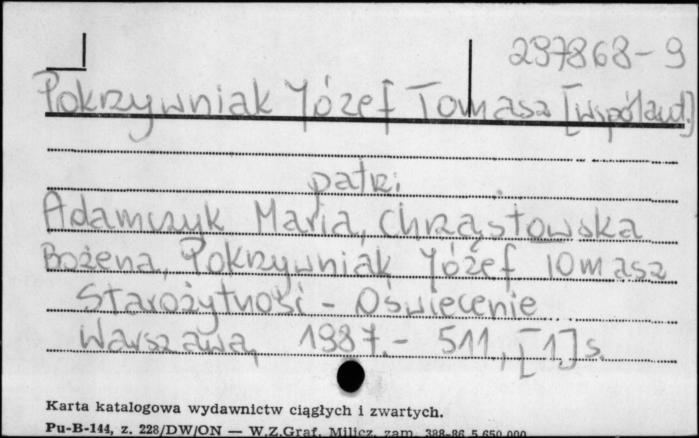 297868-9
Pokrzywniak Józef Tomasz [współaut.]
patrz:
Adamczyk Maria, Chrząstowska
Bożena, Pokrzywniak Józef Tomasz
Starożytność - Oświecenie
Warszawa, 1987.- 511, [1] s.
Karta katalogowa wydawnictw ciągłych i zwartych.
Pu-B-144, z. 228/DW/ON — W.Z.Graf. Milicz, zam. 388-86 5.650.000